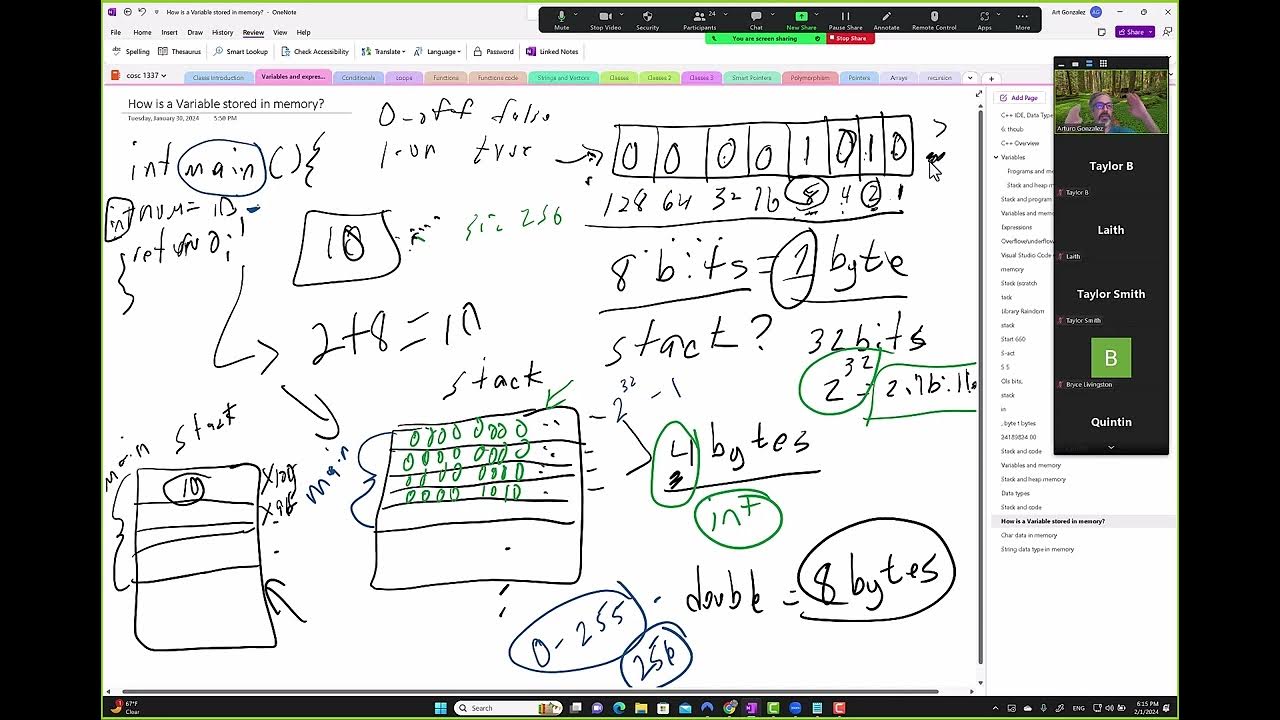 How is a Variable stored in memory? - OneNote
Art Gonzalez AG
Mute Stop Video Security Participants 24 Chat New Share Pause Share Annotate Remote Control Apps More
You are screen sharing Stop Share
File Home Insert Draw History Review View Help
Share
Spelling Thesaurus Smart Lookup Check Accessibility Translate Language Password Linked Notes
cosc 1337 Classe Introduction Variables and expres... Conditionals Loops Functions Functions code Strings and Vectors Classes Classes 2 Classes 3 Smart Pointers Polymorphism Pointers Arrays recursion
How is a Variable stored in memory?
Tuesday, January 30, 2024 5:50 PM
0-off false
1-on true
int main(){
return 0;
}
10
256
0 0 0 0 1 0 1 0
128 64 32 16 8 4 2 1
8 bits = 1 byte
2+8=10
stack? 32bits
2^32
stack
2^32 - 1
0000 0000
0000 0000
0000 0000
0000 1010
main
4 bytes
int
stack
main
10
double = 8 bytes
0-255
256
Add Page
C++ IDE, Data Type
C++ Overview
Variables
Programs and me
Stack and heap m
Stack and program
Variables and memo
Expressions
Overflow/underflow
Visual Studio Code
memory
Stack (scratch
tack
Library Raindom
stack
Start 650
S-act
5 5
Ols bits,
stack
in
, byte t bytes
24189824.00
Stack and code
Variables and memory
Stack and heap memory
Data types
Stack and code
How is a Variable stored in memory?
Char data in memory
String data type in memory
Arturo Gonzalez
Taylor B
Taylor B
Laith
Laith
Taylor Smith
Taylor Smith
B
Bryce Livingston
Quintin
67°F
Clear
Search
ENG
6:15 PM
2/1/2024